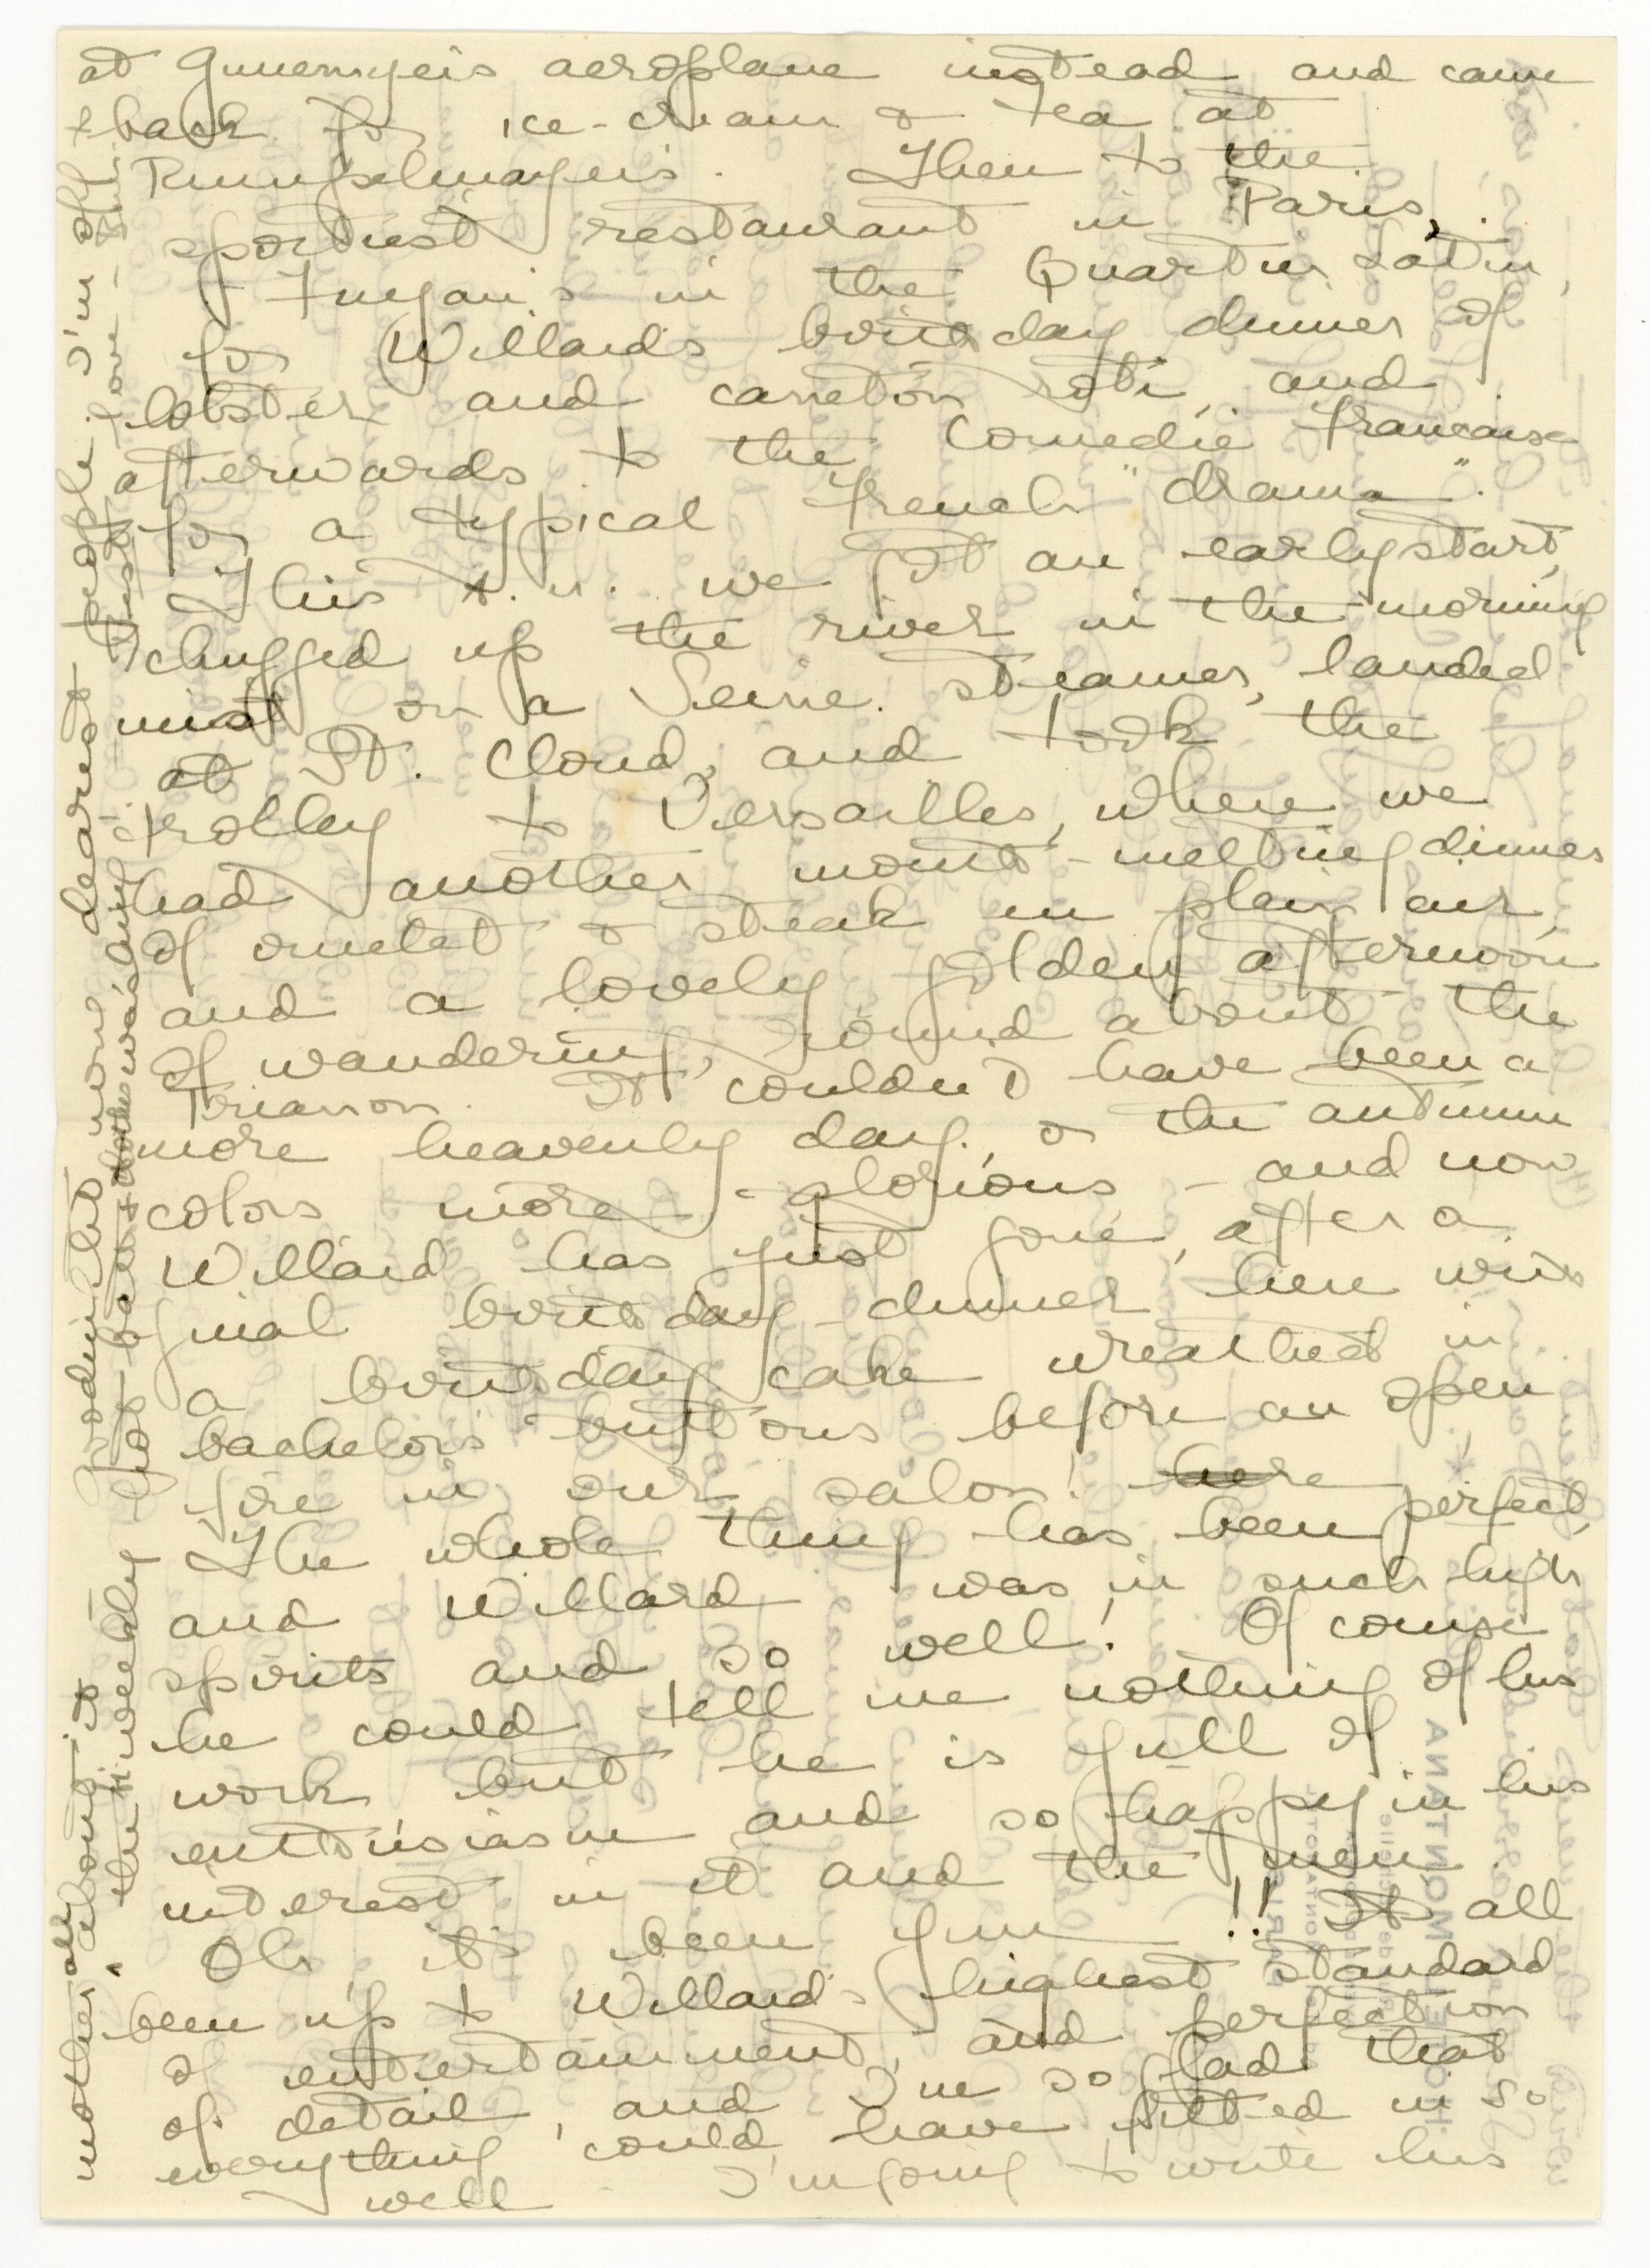 at Guenemyeis aeroplane instead and came
back for ice-cream & tea at
Rumpelmayer's. Then to the
sportiest restaurant in Paris,
in the Quartier Latin,
for Willard's birthday dinner of
lobster and caneton roti, and
afterwards to the Comedie Francaise
for a typical French "drama".
This a.m. we got an early start,
chugged up the river in the morning
mist on a Seine steamer, landed
at St. Cloud, and took the
trolley to Versailles, where we
had another mouth-melting dinner
of omelet & steak in plein air,
and a lovely golden afternoon
of wandering round about the
Trianon. It couldn't have been a
more heavenly day, or the autumn
colors more glorious - and now
Willard has just gone, after a
final birthday-dinner here with
a birthday cake wreathed in
bachelor's buttons before an open
fire in our salon! here
The whole thing has been perfect,
and Willard was in such high
spirits and so well! Of course
he could tell me nothing of his
work but he is full of
enthusiasm and so happy in his
interest in it and the men.
Oh it's been fun!! It's all
been up to Willard's highest standard
of entertainment, and perfection
of detail, and I'm so glad that
everything could have fitted in so
well. I'm going to write his
mother all about it
Goodnight now dearest people. I'm off
to bed